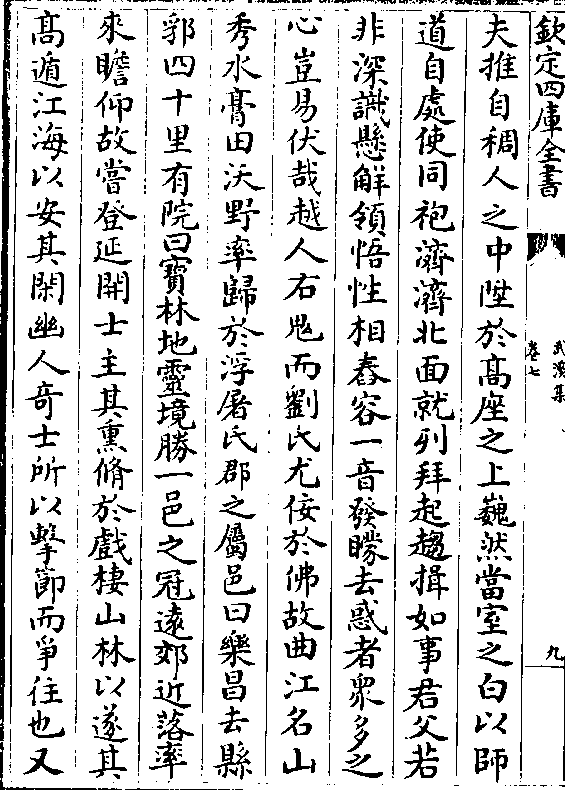 欽定四庫全書
武溪集
卷七
九
夫推自稠人之中陞於髙座之上巍然當室之白以師
道自處使同袍濟濟北面就列拜起趨揖如事君父若
非深識懸解領悟性相舂容一音發矇去惑者衆多之
心豈易伏哉越人右鬼而劉氏尤佞於佛故曲江名山
秀水膏田沃野率歸於浮屠氏郡之屬邑曰樂昌去縣
郭四十里有院曰寶林地靈境勝一邑之冠遠郊近落率
來瞻仰故嘗登延開士主其熏脩於戲棲山林以遂其
髙遁江海以安其閑幽人奇士所以擊節而爭往也又